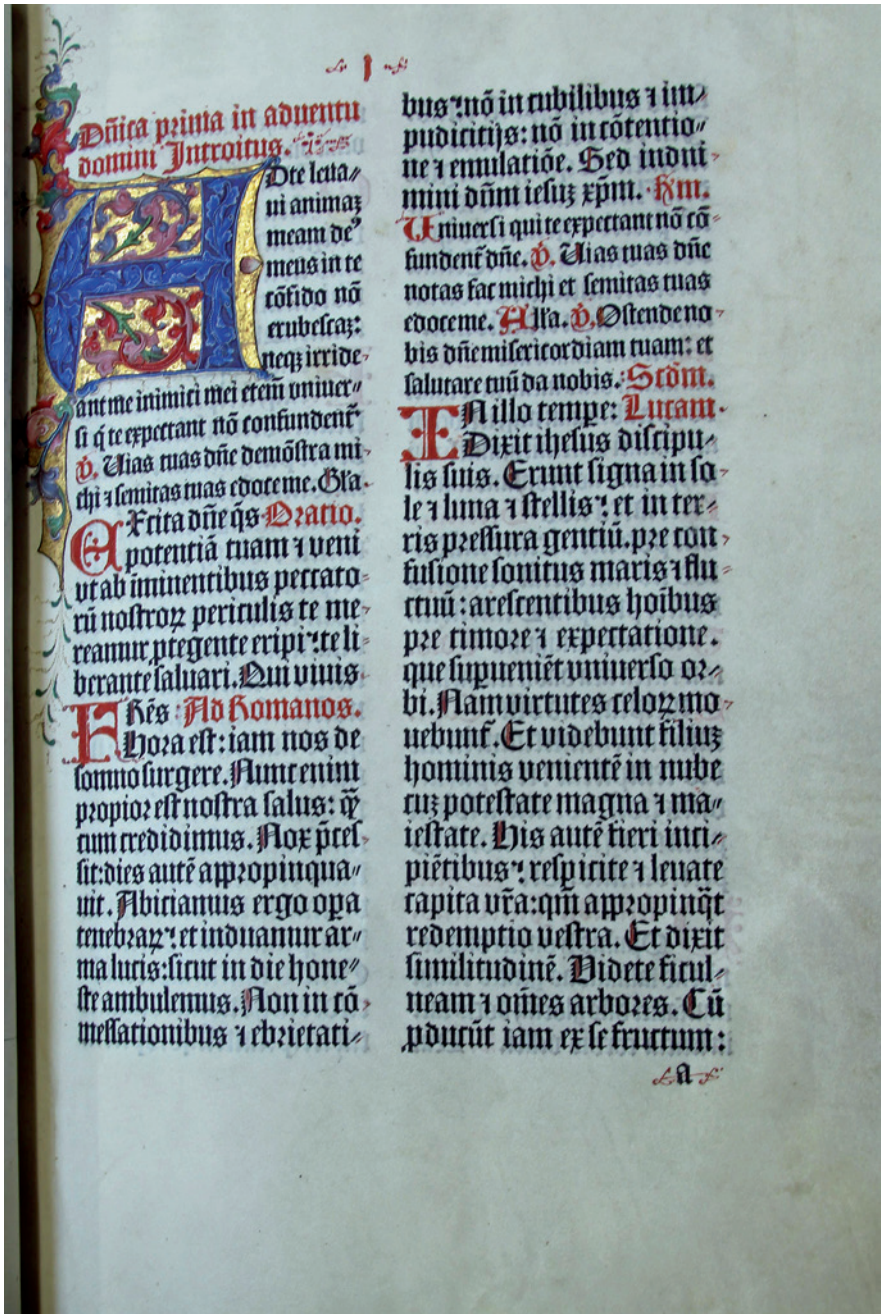 I
Dñica prima in aduentu
domini Introitus.
ADte leua⸗
ui animaꝫ
meam deꝰ
meus in te
cōfido nō
erubescaꝫ:
neqꝫ irride⸗
ant me inimici mei etem̄ vniuer⸗
si q̇ te expectant nō confundent᷑
v̇. Uias tuas dñe demōstra mi⸗
chi ⁊ semitas tuas edoce me. Gl'a.
EXcita dñe q̄s Oratio.
potentiā tuam ⁊ veni
vt ab īminentibus peccato⸗
rū nostroꝝ periculis te me⸗
reamur ꝓtegente eripi: te li⸗
berante saluari. Qui viuis
FRēs: Ad Romanos.
Hora est: iam nos de
somno surgere. Nunc enim
propior est nostra salus: q̄ꝫ
cum credidimus. Nox p̄ces⸗
sit: dies autē appropinqua⸗
uit. Abiciamus ergo oꝑa
tenebraꝝ: et induamur ar⸗
ma lucis: sicut in die hone⸗
ste ambulemus. Non in cō⸗
messationibus ⁊ ebrietati⸗
bus: nō in cubilibus ⁊ im⸗
pudicitijs: nō in cōtentio⸗
ne ⁊ emulatiōe. Sed indui⸗
mini dūm iesuꝫ xp̄m. Gr̄m.
Uniuersi qui te expectant nō cō⸗
fundent᷑ dñe. v̇. Uias tuas dñe
notas fac michi et semitas tuas
edoce me. All'a. v̇. Ostende no⸗
bis dñe misericordiam tuam: et
salutare tuū da nobis. Scd̄m.
IN illo tempe: Lucam.
Dixit ihesus discipu⸗
lis suis. Erunt signa in so⸗
le ⁊ luna ⁊ stellis: et in ter⸗
ris pressura gentiū. pre con⸗
fusione sonitus maris ⁊ flu⸗
ctuū: arescentibus hoībus
pre timore ⁊ expectatione.
que suꝑueniēt vniuerso or⸗
bi. Nam virtutes celoꝝ mo⸗
uebunt᷑. Et videbunt filiuꝫ
hominis venientē in nube
cuꝫ potestate magna ⁊ ma⸗
iestate. His autē fieri inci⸗
piētibus: respicite ⁊ leuate
capita vr̄a: qm̄ appropinq̇t
redemptio vestra. Et dixit
similitudinē. Videte ficul⸗
neam ⁊ om̄es arbores. Cū
ꝓducūt iam ex se fructum:
a